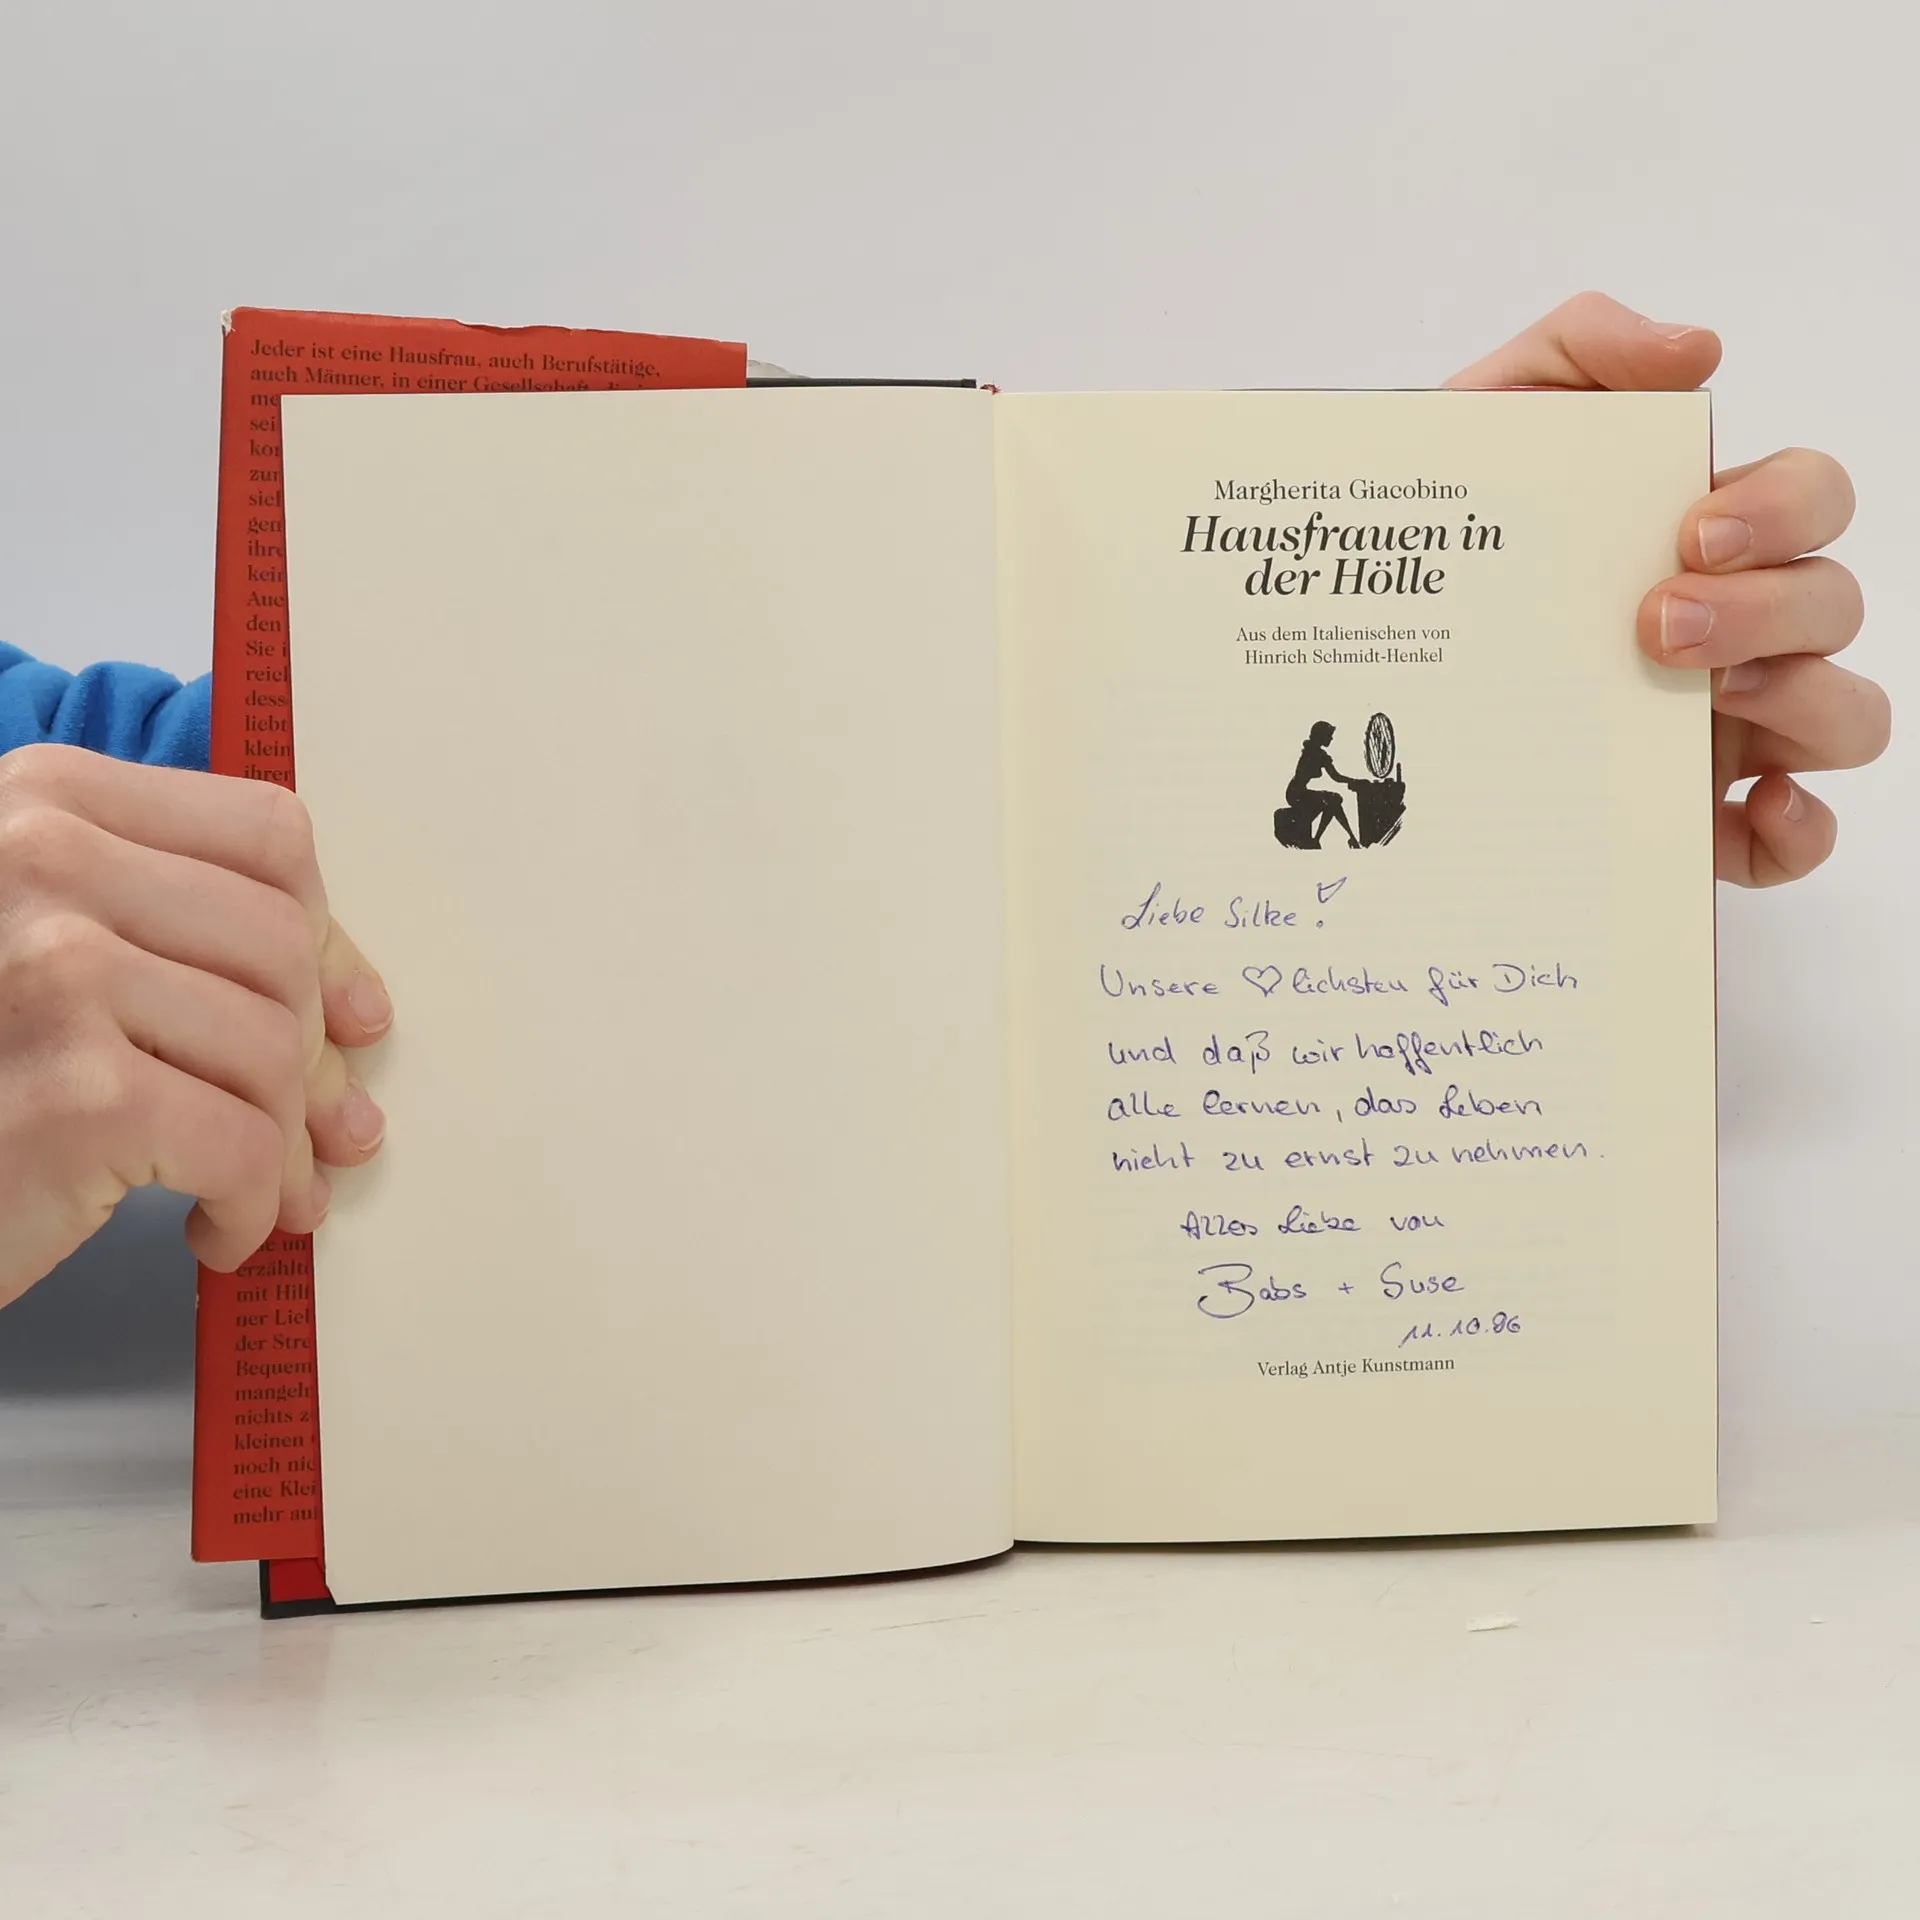 Jeder ist eine Hausfrau, auch Berufstätige,
auch Männer, in einer Gesellschaft,
me
sei
kor
zur
sich
gen
ihre
kein
Auc
den
Sie i
reich
dess
liebt
klein
ihrer
un
erzählte
mit Hilf
ner Lieb
der Stre
Bequem
mangeln
nichts z
kleinen
noch nic
eine Klei
mehr au
Margherita Giacobino
Hausfrauen in
der Hölle
Aus dem Italienischen von
Hinrich Schmidt-Henkel
Liebe Silke!
Unsere ♡lichsten für Dich
und daß wir hoffentlich
alle lernen, das Leben
nicht zu ernst zu nehmen.
Alles Liebe von
Babs + Suse
11.10.96
Verlag Antje Kunstmann